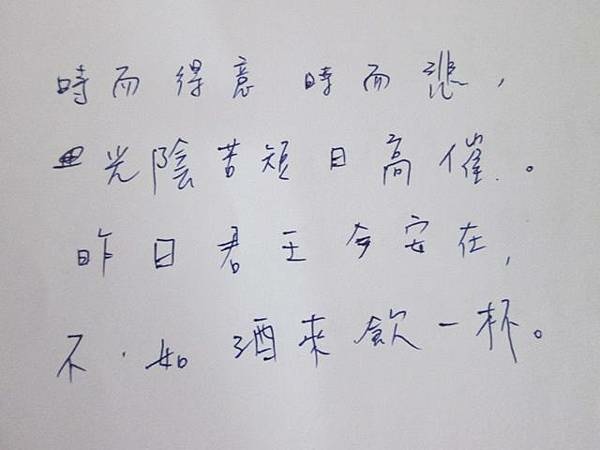 時而得意時而悲，
光陰苦短日高催。
昨日君王今安在，
不如酒來飲一杯。